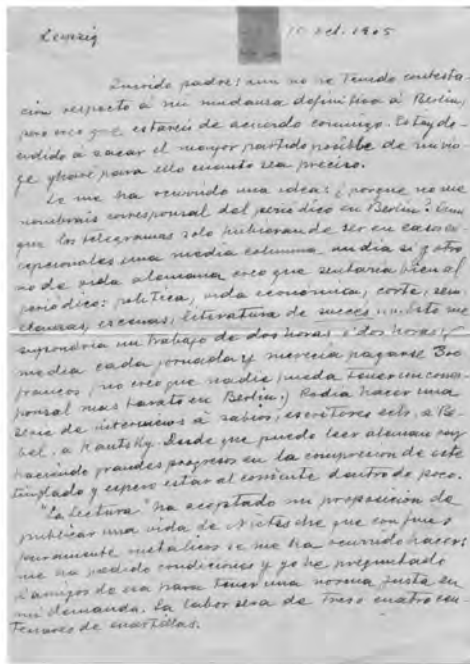 Leipzig 10 Oct. 1905
Querido padre: aun no he tenido contesta-
ción respecto á mi mudansa definitiva á Berlin,
pero creo que estareis de acuerdo conmigo. Estoy de-
cidido á sacar el mayor partido posible de mi via-
ge y haré para ello cuanto sea preciso.
Se me ha ocurrido una idea: ¿porque no me
nombrais corresponsal del periódico en Berlin? Aun
que los telegramas solo hubieran de ser en casos ex-
cepcionales una media columna un dia si y otro
no de vida alemana creo que sentaria bien al
periódico: politica, vida económica, corte, sem-
blanzas, escenas, literatura de succés ... Esto me
supondria un trabajo de dos horas ó dos horas y
media cada jornada y merecia pagarse 300
francos (no creo que nadie pueda tener un corres-
ponsal mas barato en Berlin.) Podia hacer una
serie de interviews á sabios, escritores ect., a Be-
bel, a Kautsky. Desde que puedo leer aleman voy
haciendo grandes progresos en la compresion de este
tinglado y espero estar al corriente dentro de poco.
"La Lectura" ha aceptado mi proposición de
publicar una vida de Nietzsche que con fines
puramente metalicos se me ha ocurrido hacer:
me ha pedido condiciones y yo he preguntado
á amigos de esa para tener una norma justa en
mi demanda. La labor sera de tres o cuatro cen-
tenares de cuartillas.